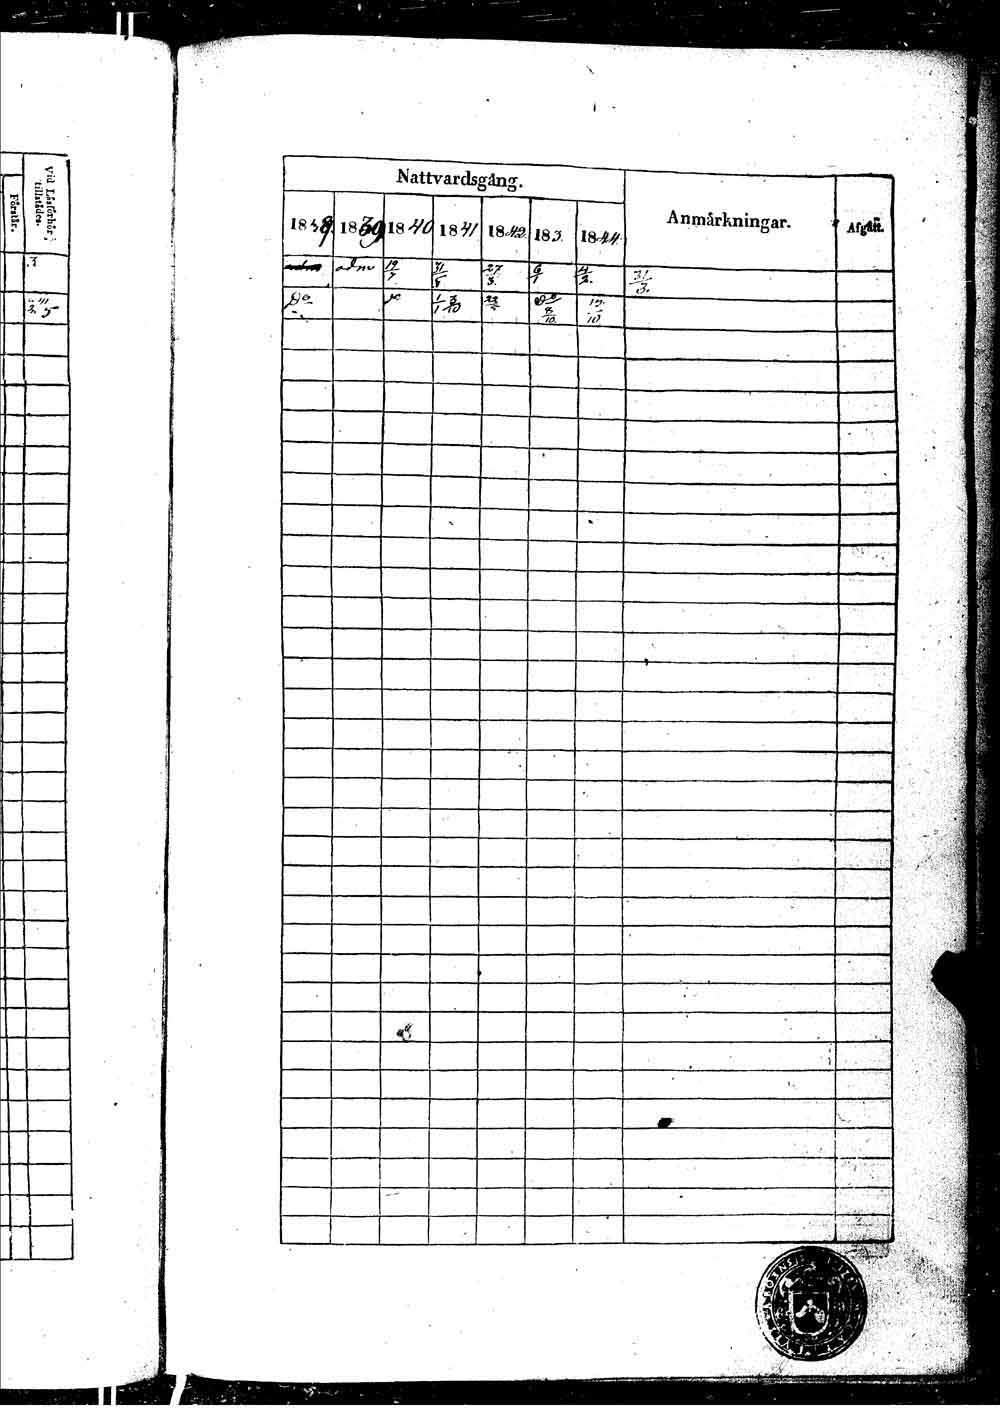 Vid Läsförhör
tillstädes.
Förstår.
.3
5
Nattvardsgång.
Anmärkningar.
Afgått.
1838 1839 1840 1841 1842 183. 1844
adm adm 12/7 31/5 27/3 6/1 4/2 31/3
Do 1/1 3/10 Do 8/10 13/10